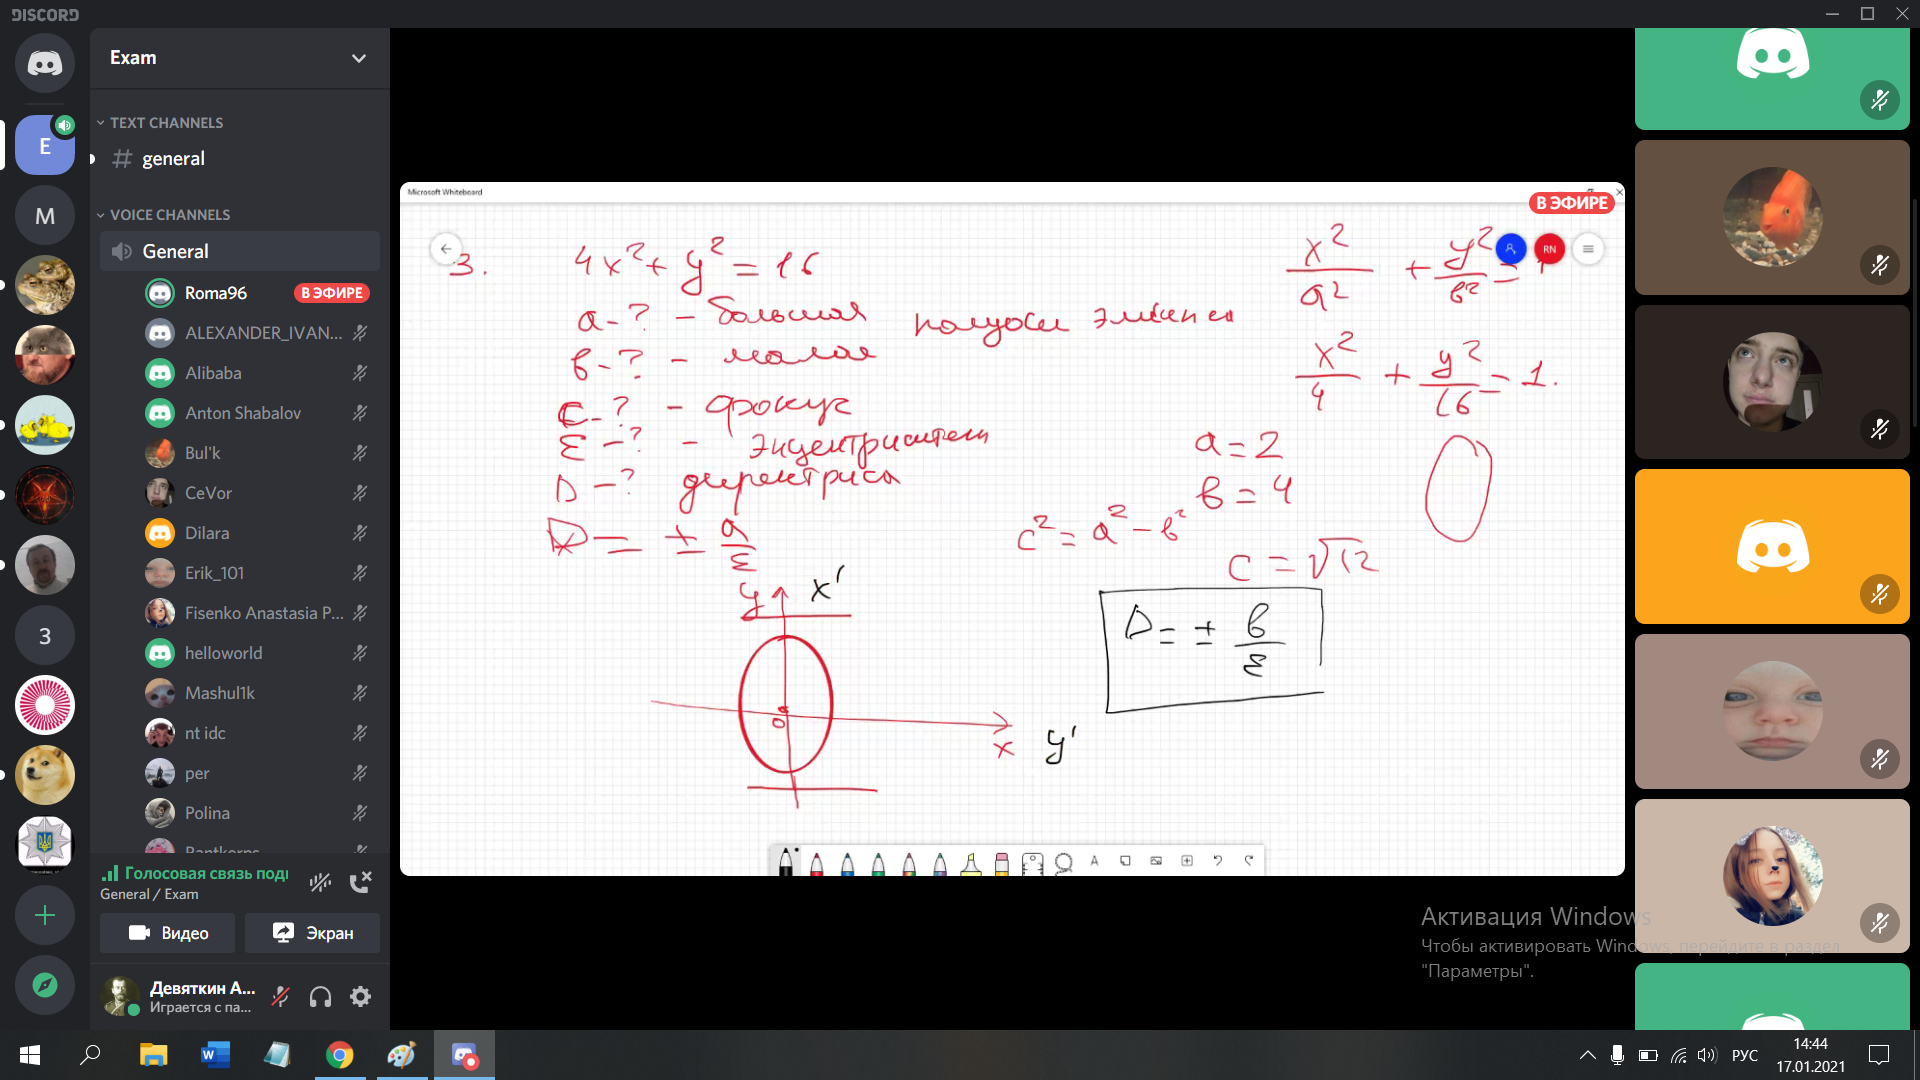 DISCORD
Exam
TEXT CHANNELS
general
VOICE CHANNELS
General
Roma96 В ЭФИРЕ
ALEXANDER_IVAN...
Alibaba
Anton Shabalov
Bul'k
CeVor
Dilara
Erik_101
Fisenko Anastasia P...
helloworld
Mashul1k
nt idc
per
Polina
E
M
3
Голосовая связь подк
General / Exam
Видео
Экран
Девяткин А...
Играется с па...
Microsoft Whiteboard
В ЭФИРЕ
RN
3. 4x² + y² = 16
a - ? - большая полуоси эллипса
в - ? - малая
c - ? - фокус
ε - ? - эксцентриситет
D - ? директриса
D = ± a/ε
x²/a² + y²/в² = 1
x²/4 + y²/16 = 1.
a = 2
в = 4
c² = a² - в²
c = √12
D = ± в/ε
y x'
0
x y'
A
Активация Windows
Чтобы активировать Windows, перейдите в раздел
"Параметры".
РУС
14:44
17.01.2021